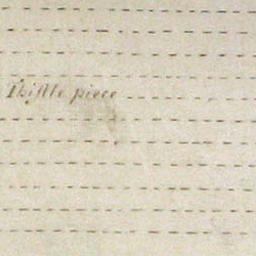 Thistle piece